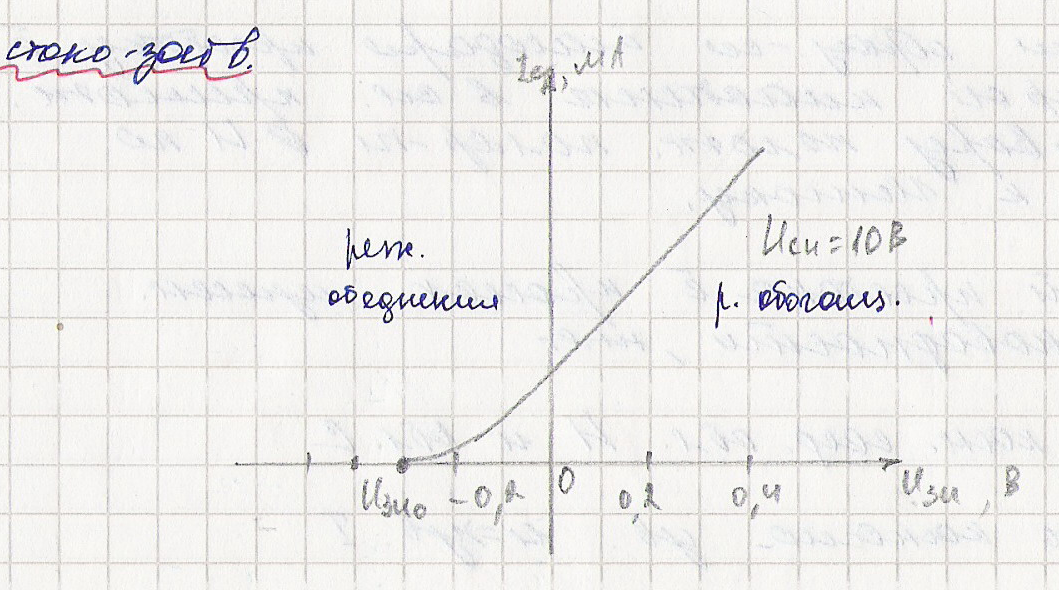 стоко-затв.
Iс, мА
реж.
обеднения
Uси = 10 В
р. обогащ.
Uзи₀ -0,2 0 0,2 0,4 Uзи, В